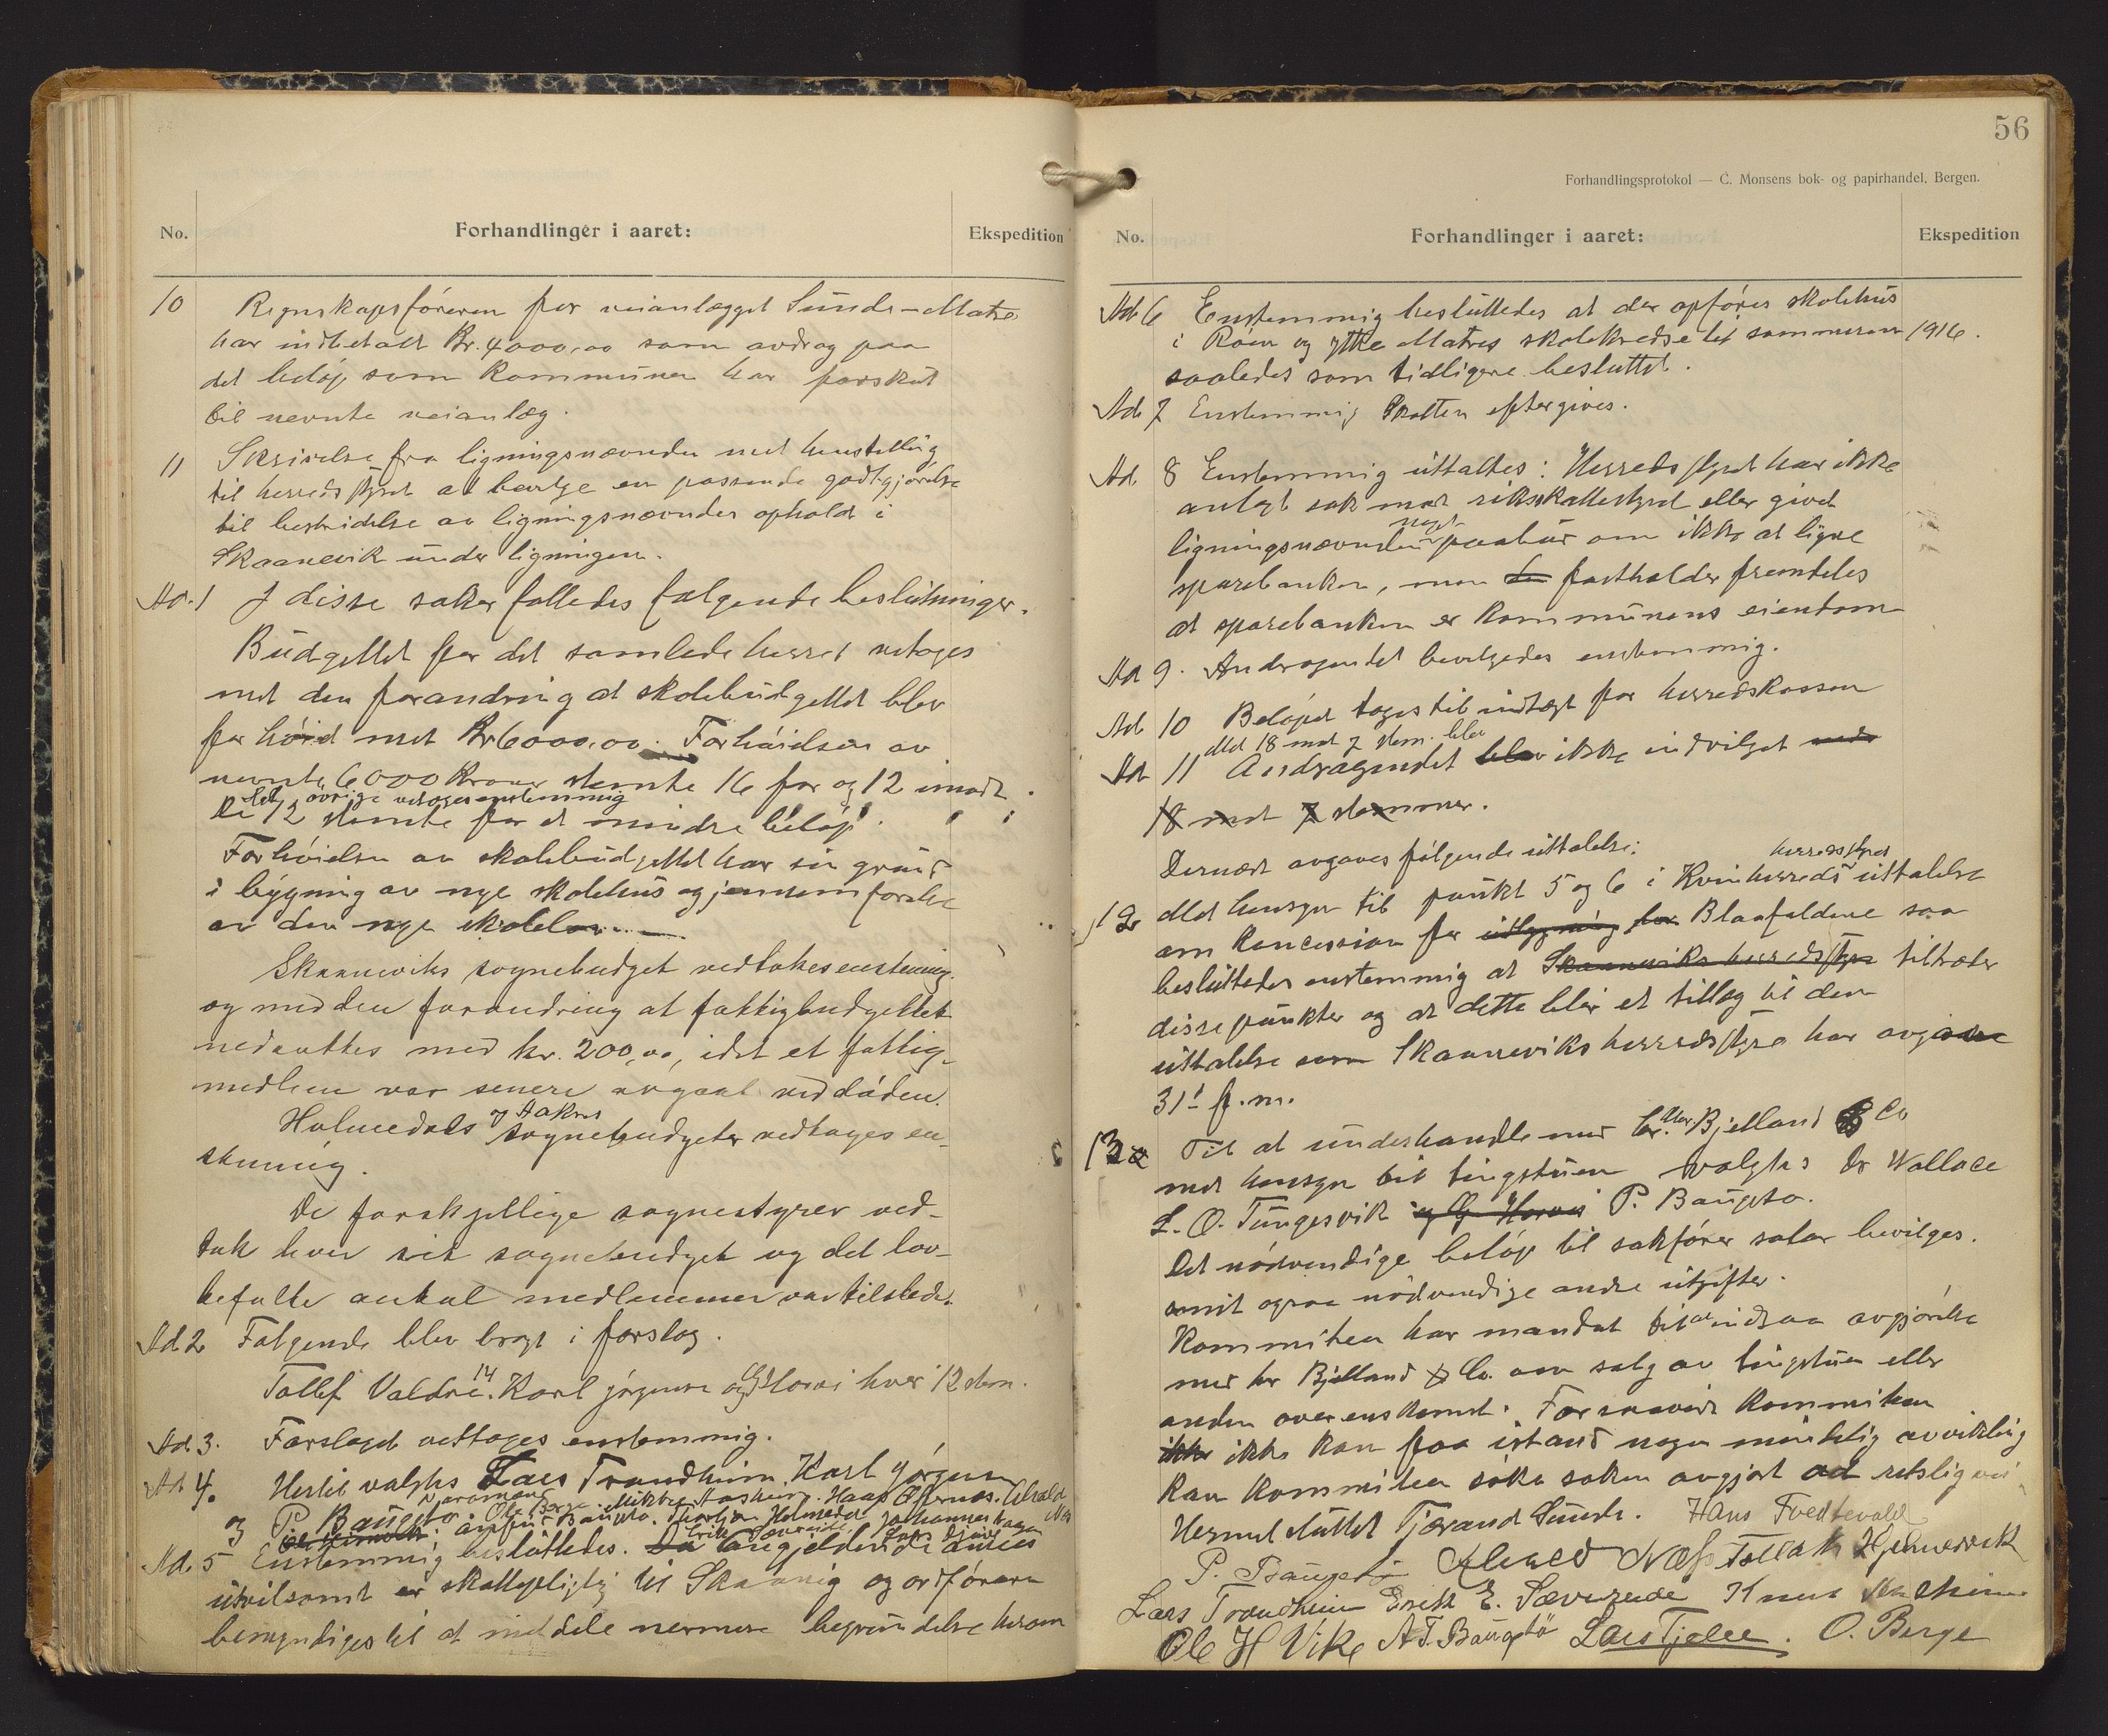 No.
Forhandlinger i aaret:
Ekspedition
10 Regnskapsføreren for veianlægget Sunde-Matre
har indbetalt Kr. 4000,00 som avdrag paa
det beløp som Kommunen har forskut
til nevnte veianlæg.
11 Skrivelse fra ligningsnævnden med henstilling
til herredsstyret at bevilge en passende godtgjørelse
til bestridelse av ligningsnævndes ophold i
Skaanevik under ligningen.
Ad. 1 I disse saker falledes følgende beslutninger.
Budgettet for det samlede herred vetoges
met den forandring at skolebudgettet blev
forhøid met Kr 6000,00. Forhøidsen av
nevnte 6000 Kroner stemte 16 for og 12 imodt.
Det øvrige vetoges enstemmig
De 12 stemte for et mindre beløp.
Forhøielsen av skolebudgettet har sin grund
i bygning av nye skolehus og jennemførelse
av den nye skolelov.
Skaaneviks sognebudget vedtokes enstemig.
og med den forandring at fattigbudgettet
nedsattes med kr. 200,00, idet et fattig-
medlem var senere avgaat ved døden.
Holmedals og Aakres sognebudgeter vedtages en-
stemig.
De forskjellige sognestyrer ved-
tak hver sit sognebudget og det lov-
befalte antal medlemmer var tilstede.
Ad 2 Følgende blev bragt i forslag.
Tollef Valdre 14. Karl jørgensen og G. Horvei hver 12 stem.
Ad 3. Forslaget vettoges enstemmig.
Ad 4. Hertil valgtes Lars Trondheim, Karl Jørgensen
og P. Baugsto. Ole Berge.
Ad. 5 Enstemmig besluttedes.
utvilsomt er skattepligtig til Skaanevig og ordføreren
bemyndiges til at meddele nermere begrundelse herom
56
Forhandlingsprotokol — C. Monsens bok- og papirhandel, Bergen.
No.
Forhandlinger i aaret:
Ekspedition
Ad 6 Enstemmig besluttedes at der opføres skolehus
i Røen og ytre Matres skolekredse til sommeren 1916.
saaledes som tidligere besluttet.
Ad. 7 Enstemmig Skatten eftergives.
Ad. 8 Enstemmig uttaltes: Herredsstyret har ikke
anlagt sak mot riksskattestyret eller givet
ligningsnævnden noget paabud om ikke at ligne
sparebanken, men den fastholder fremdeles
at sparebanken er Kommunens eiendom
Ad 9. Andragendet bevilgedes enstemmig.
Ad. 10 Beløpet toges til indtægt for herredskassen
Med 18 mot 7 stem. blev
Ad 11 Andragendet blev ikke indvilget med
18 mot 7 stemmer.
Dernæst avgaves følgende uttalelse:
12 Med hensyn til punkt 5 og 6 i Kvinherreds herredsstyres uttalelse
om koncession for utbygning for Blaafaldene saa
besluttedes enstemmig at Skaaneviks herredsstyre tiltræder
disse punkter og at dette blir et tillæg til den
uttalelse som Skaaneviks herredsstyre har avgivne
31' f.m.
13 Til at underhandle med Chr. Bjelland & Co
med hensyn til tingstuen valgtes Dr Wallace
L. O. Tungesvik og G. Horvei P. Baugsto.
Det nødvendige beløp til sakfører salær bevilges.
samt ogsaa nødvendige andre utgifter.
Kommiteen har mandat til at indgaa avgjørelse
med hr Bjelland & Co. om salg av tingstuen eller
anden overenskomst. Forsaavidt Kommiteen
ikke ikke kan faa istand nogen mindelig avvikling
kan Kommiteen søke saken avgjort ad retslig vei
Hermed sluttet Tjerand Sunde. Hans Tvedtevold
P. Baugsto Alvald Næs Tollak Hjelmervik
Lars Trondheim Erik E. Sæverude Knut Maskin
Ole H Vike A T. Baugstø Lars Tjelle. O. Berge